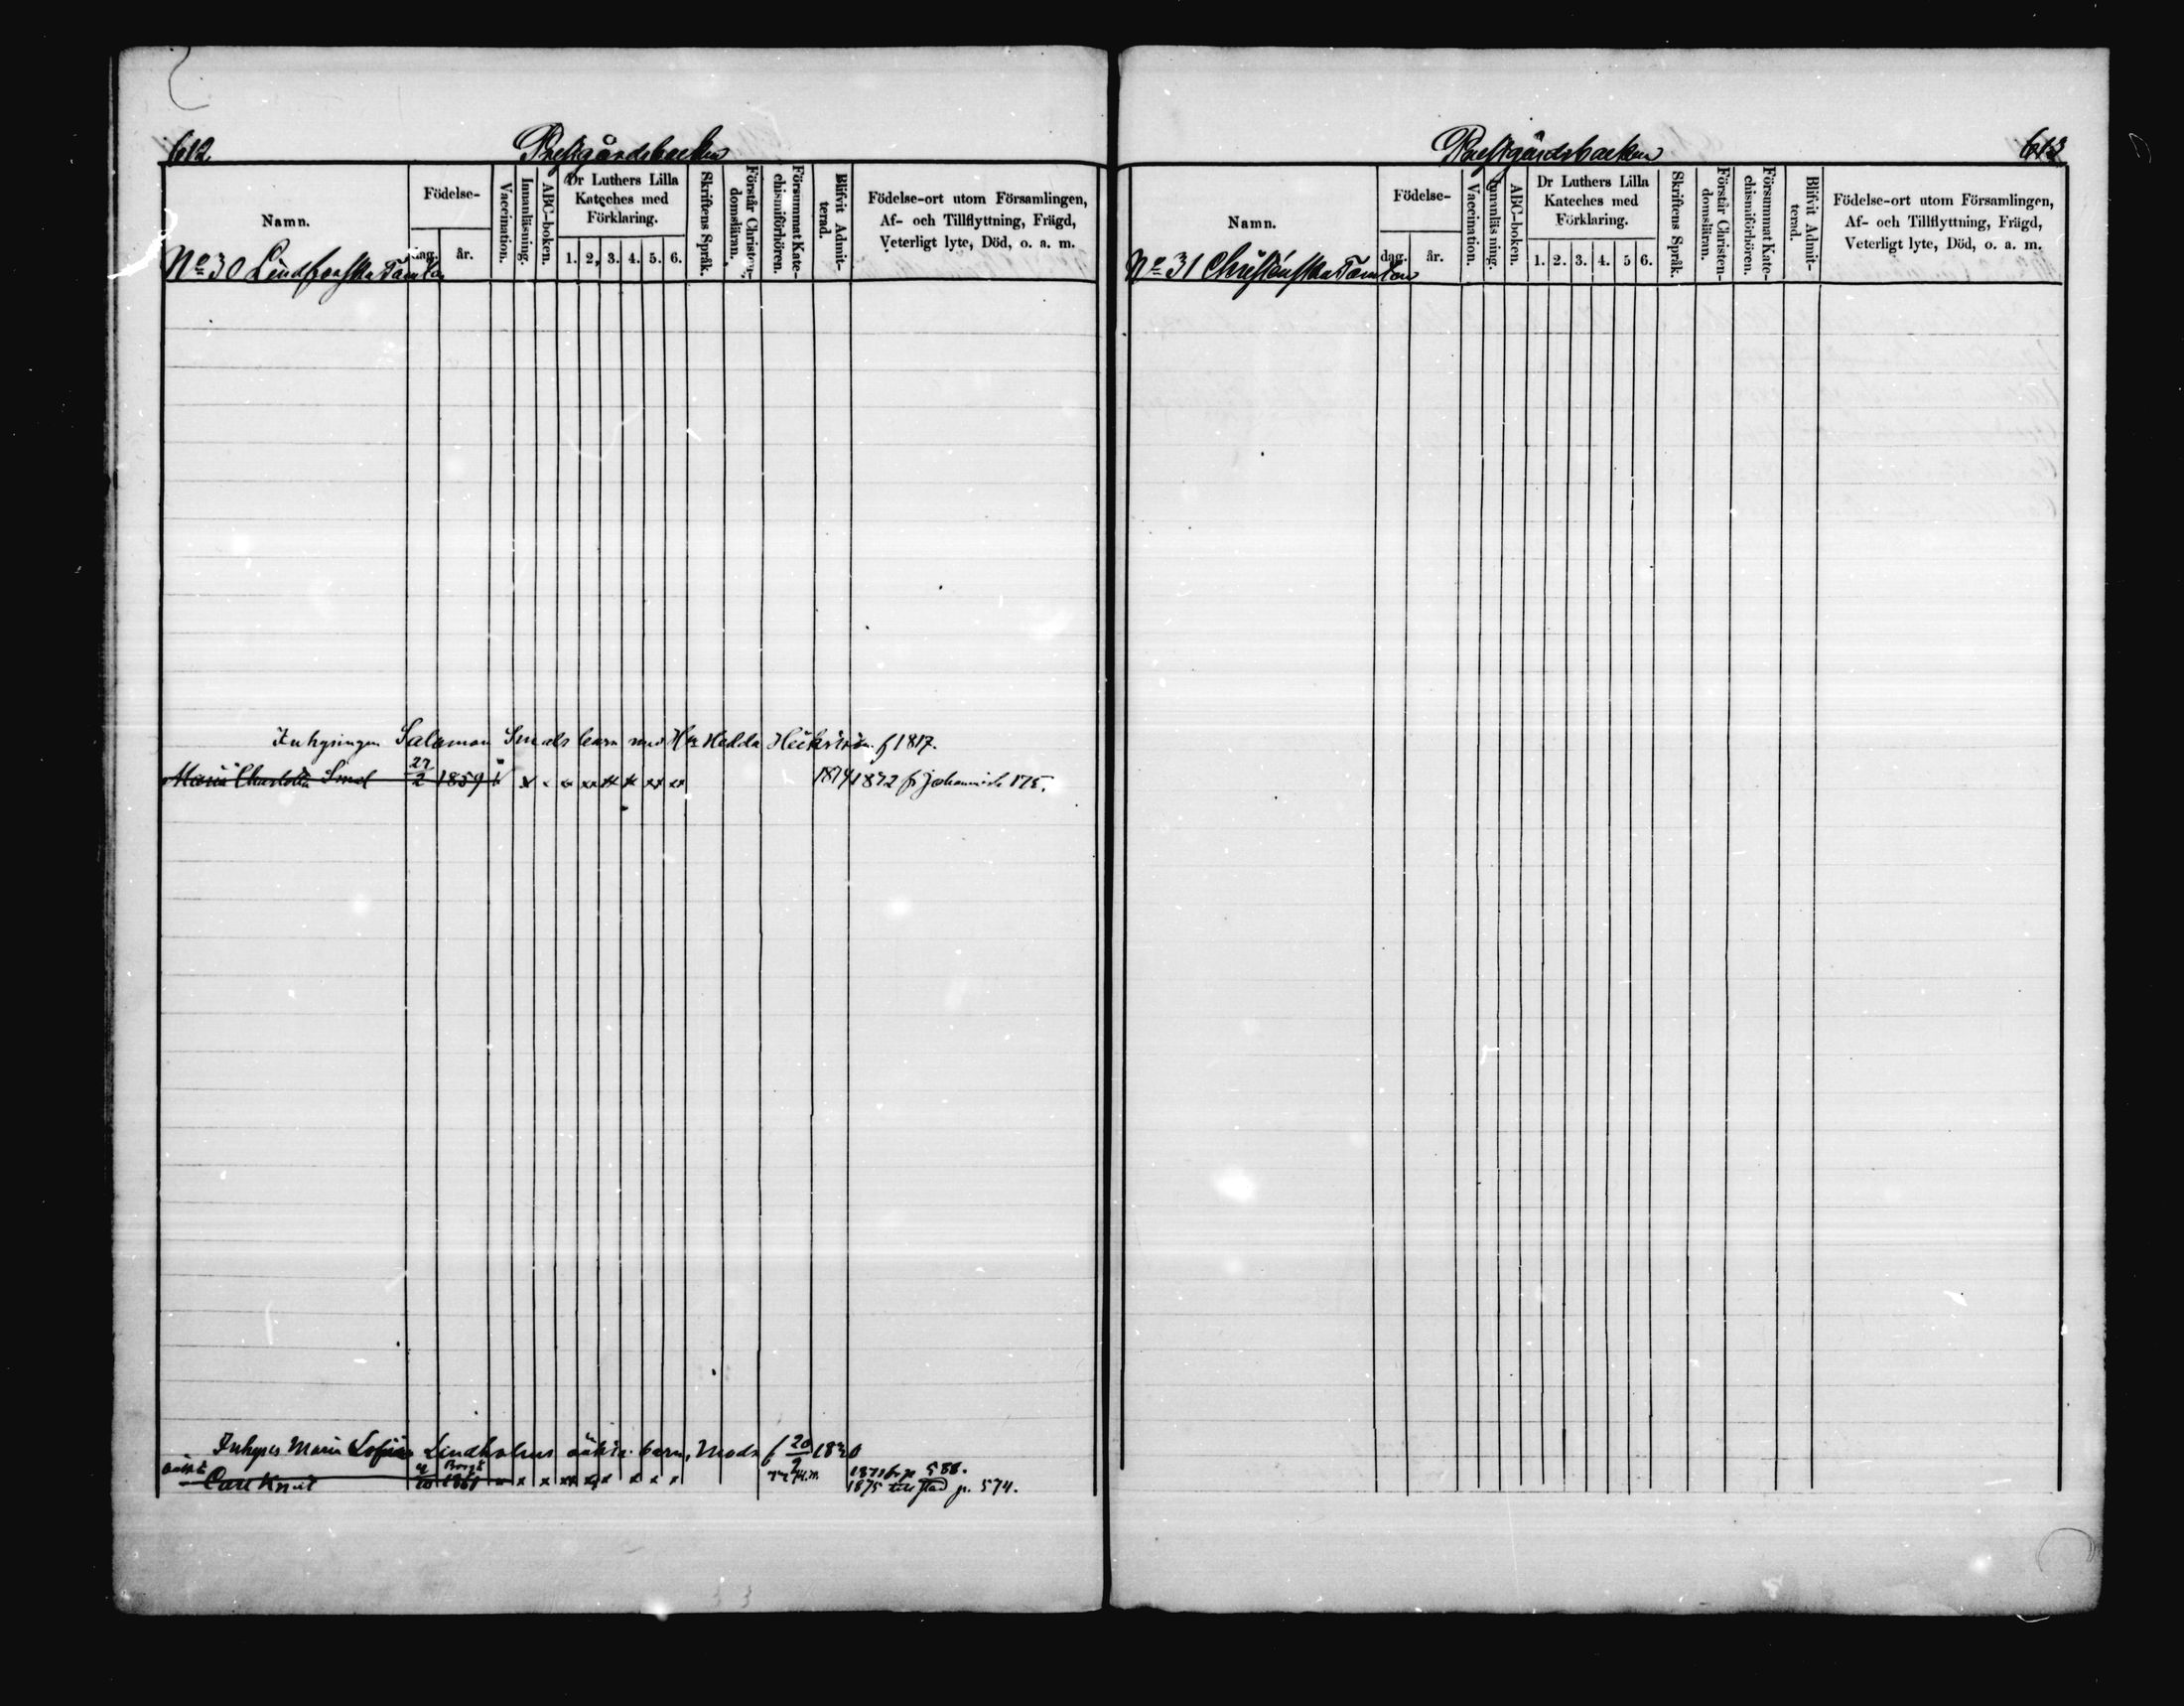 612
Prestgårdsbacken
Namn.
Födelse-
dag.
år.
Vaccination.
Innanläsning.
ABC-boken.
Dr Luthers Lilla
Kateches med
Förklaring.
1. 2. 3. 4. 5. 6.
Skriftens Språk.
Förstår Christen-
domsläran.
Försummat Kate-
chismiförhören.
Blifvit Admit-
terad.
Födelse-ort utom Församlingen,
Af- och Tillflyttning, Frägd,
Veterligt lyte, Död, o. a. m.
No 30 Lindforsska Tomten
Inhysingen Salomon Smals barn med H. Hedda f 1817.
Maria Charlotta Smal 27/2 1859 v x x 1874 1872 fr Johannisb 175.
Inhyses Maria Sofia Lindholms oäkta barn, Modr f 20/9 1830
oäkta
Carl Knut Borgå 1860 x x x x x x 588.
1875 till stad p. 574.
Prestgårdsbacken
613
Namn.
Födelse-
dag.
år.
Vaccination.
Innanläsning.
ABC-boken.
Dr Luthers Lilla
Kateches med
Förklaring.
1. 2. 3. 4. 5 6.
Skriftens Språk.
Förstår Christen-
domsläran.
Försummat Kate-
chismiförhören.
Blifvit Admit-
terad.
Födelse-ort utom Församlingen,
Af- och Tillflyttning, Frägd,
Veterligt lyte, Död, o. a. m.
No 31 Tomten